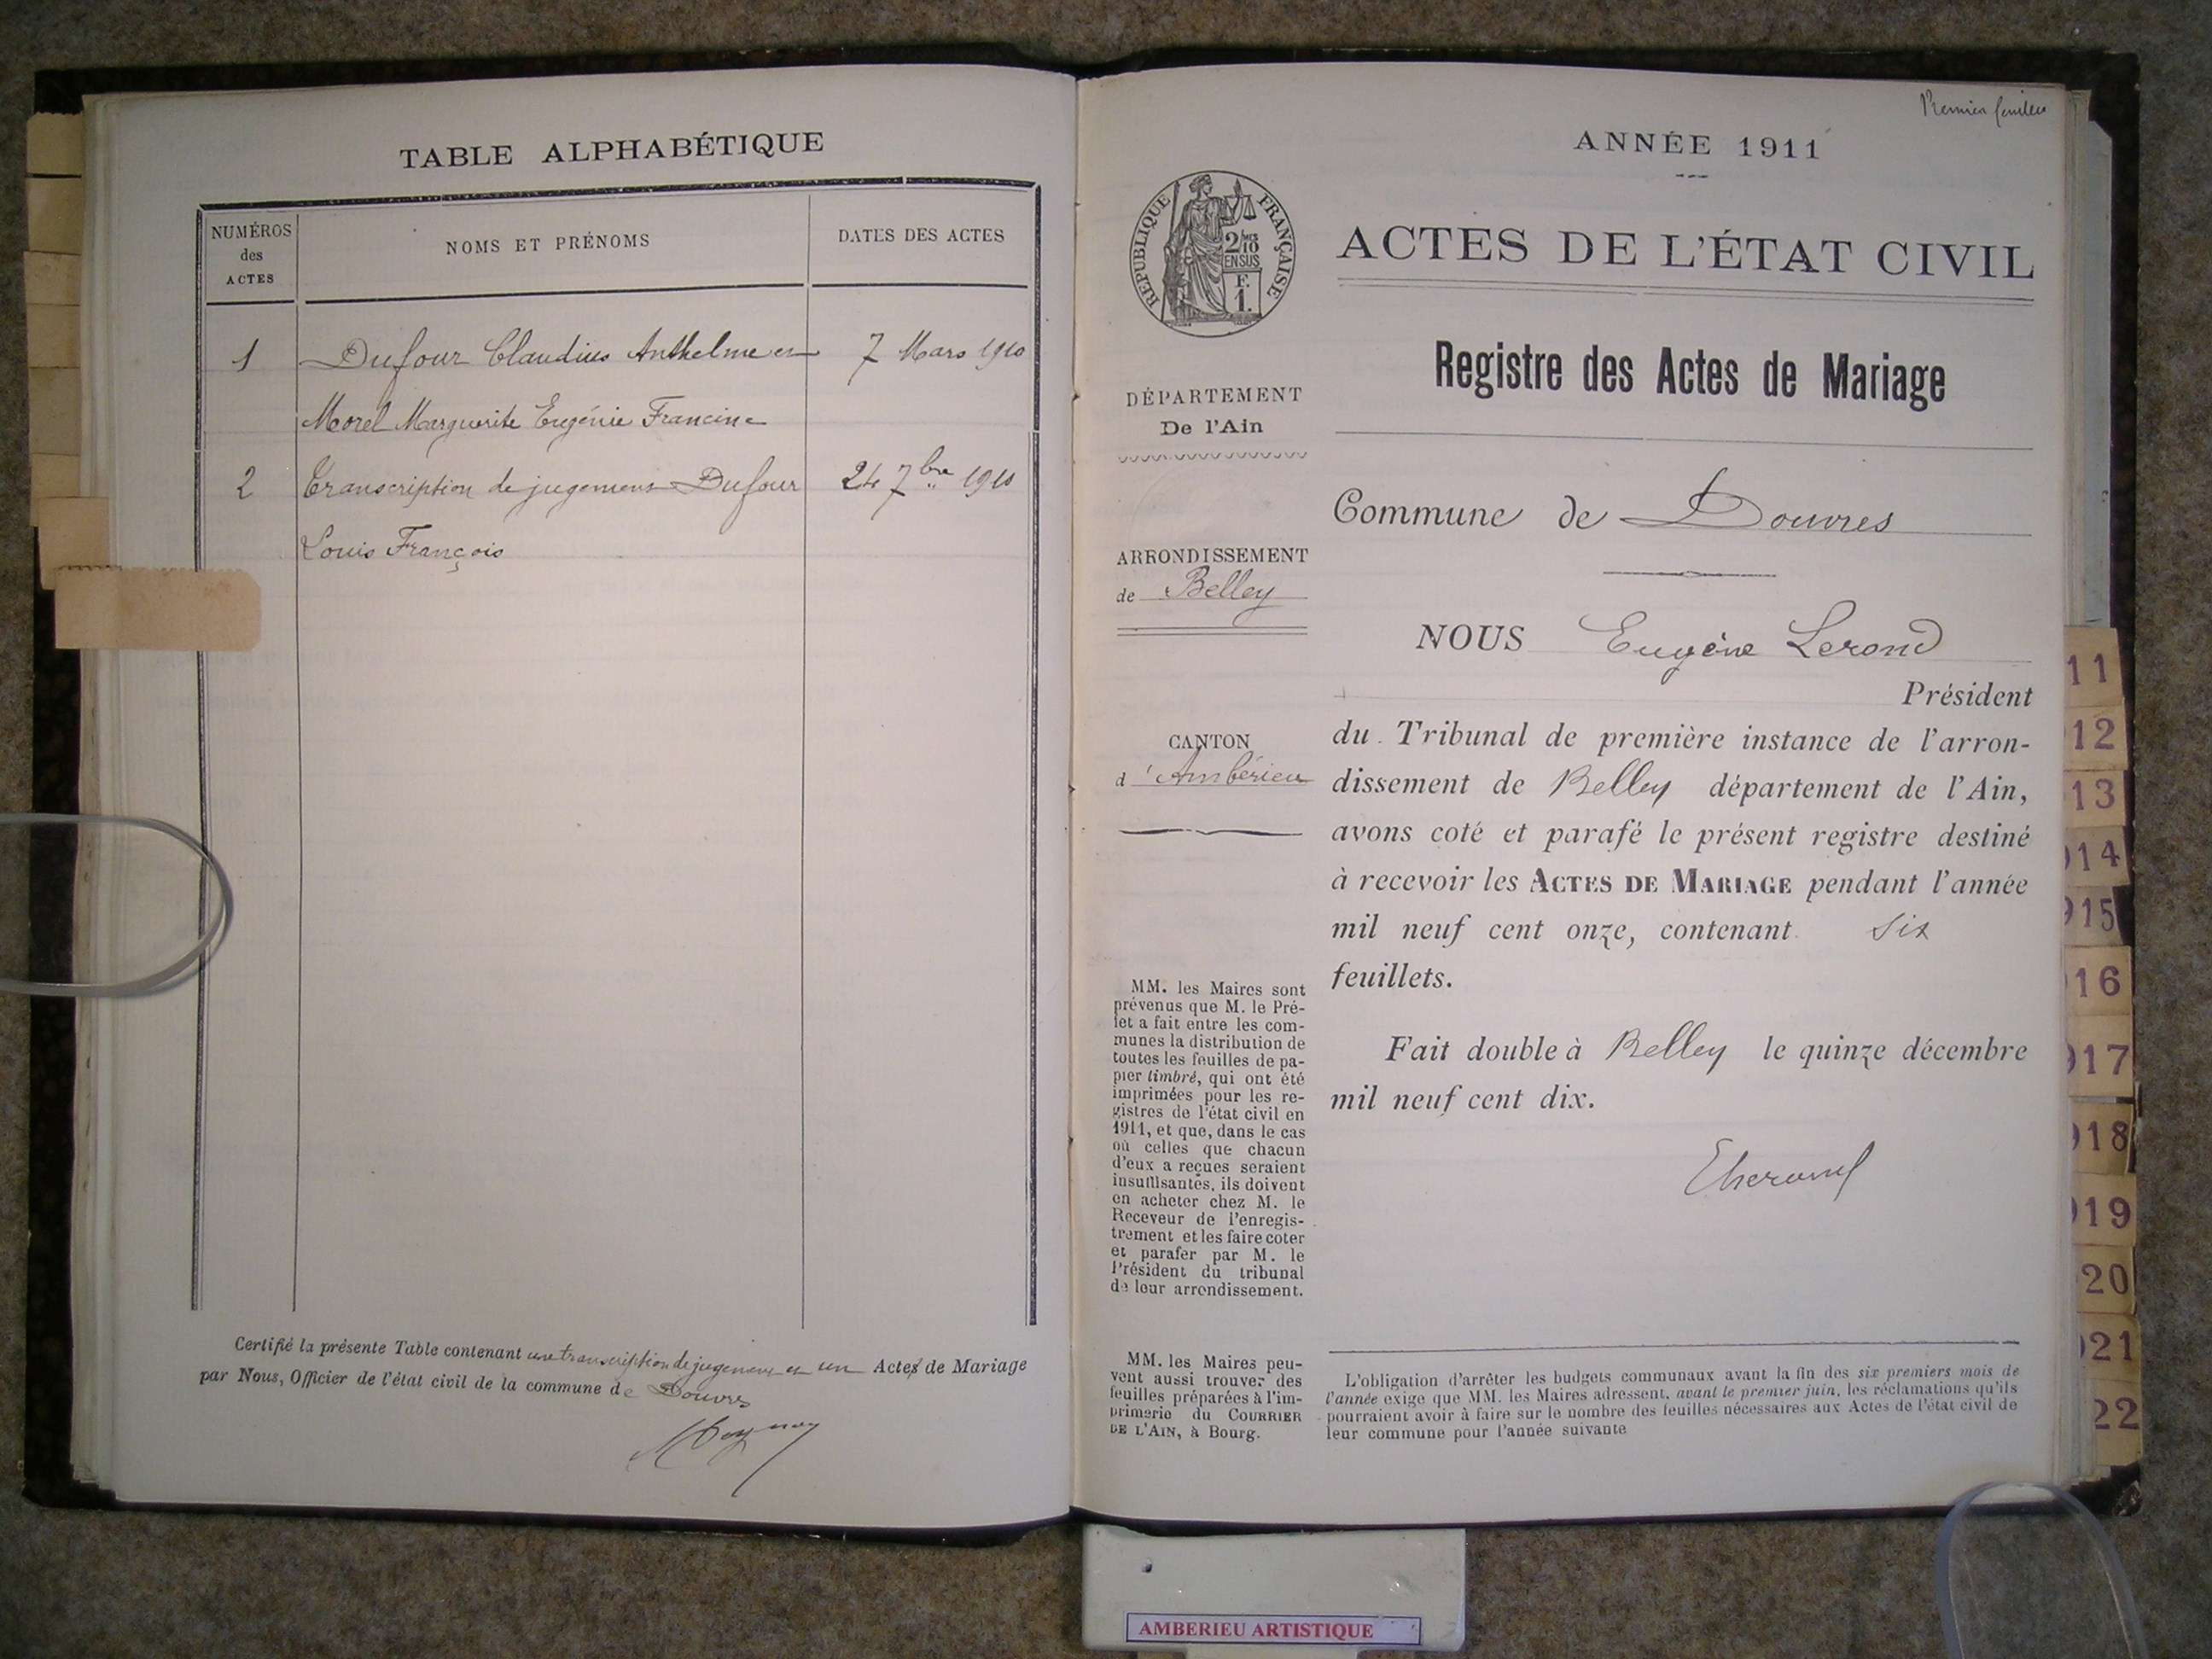 TABLE ALPHABÉTIQUE
NUMÉROS
des
ACTES
NOMS ET PRÉNOMS
DATES DES ACTES
1 Dufour Claudius Anthelme et 7 Mars 1910
Morel Marguerite Eugénie Francine
2 Transcription de jugement Dufour 24 7bre 1910
Louis François
Certifié la présente Table contenant une transcription de jugement et un Actes de Mariage
par Nous, Officier de l'état civil de la commune de Douvres
Premier feuillet
ANNÉE 1911
RÉPUBLIQUE FRANÇAISE
2/10
EN SUS
F.
1.
ACTES DE L'ÉTAT CIVIL
Registre des Actes de Mariage
DÉPARTEMENT
De l'Ain
ARRONDISSEMENT
de Belley
CANTON
d'Ambérieu
Commune de Douvres
NOUS Eugène Lerond
Président
du Tribunal de première instance de l'arron-
dissement de Belley département de l'Ain,
avons coté et parafé le présent registre destiné
à recevoir les ACTES DE MARIAGE pendant l'année
mil neuf cent onze, contenant six
feuillets.
Fait double à Belley le quinze décembre
mil neuf cent dix.
MM. les Maires sont
prévenus que M. le Pré-
fet a fait entre les com-
munes la distribution de
toutes les feuilles de pa-
pier timbré, qui ont été
imprimées pour les re-
gistres de l'état civil en
1911, et que, dans le cas
où celles que chacun
d'eux a reçues seraient
insuffisantes, ils doivent
en acheter chez M. le
Receveur de l'enregis-
trement et les faire coter
et parafer par M. le
Président du tribunal
de leur arrondissement.
MM. les Maires peu-
vent aussi trouver des
feuilles préparées à l'im-
primerie du COURRIER
DE L'AIN, à Bourg.
L'obligation d'arrêter les budgets communaux avant la fin des six premiers mois de
l'année exige que MM. les Maires adressent, avant le premier juin, les réclamations qu'ils
pourraient avoir à faire sur le nombre des feuilles nécessaires aux Actes de l'état civil de
leur commune pour l'année suivante
11
12
13
14
15
16
17
18
19
20
21
22
AMBERIEU ARTISTIQUE